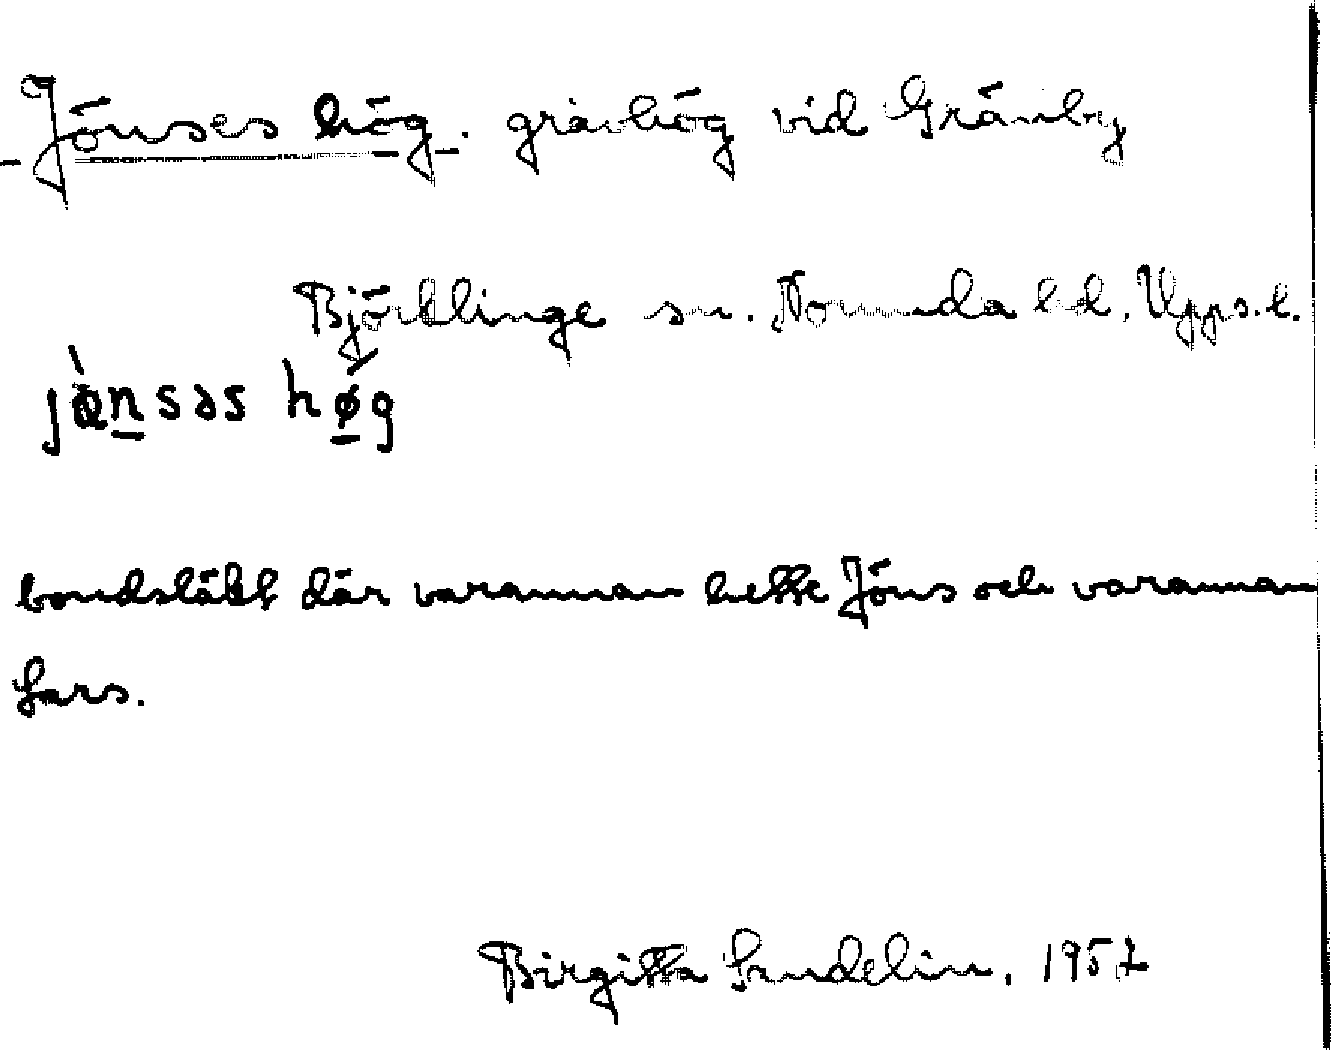 Jönses hög. gravhög vid Gränby
Björklinge sn. Norunda hd. Upps. l.
jœ̀nsəs hǿg
bondsläkt där varannan hette Jöns och varannan
Lars.
Birgitta Sundelin. 1957